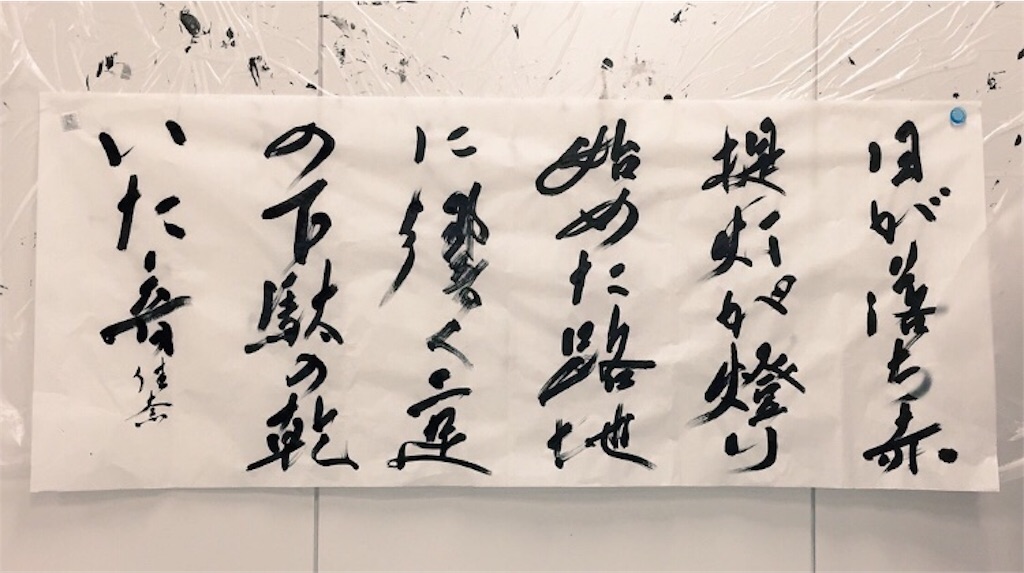 日が落ち赤
提灯が燈り
始めた路地
に響く二足
の下駄の乾
いた音 佳奈